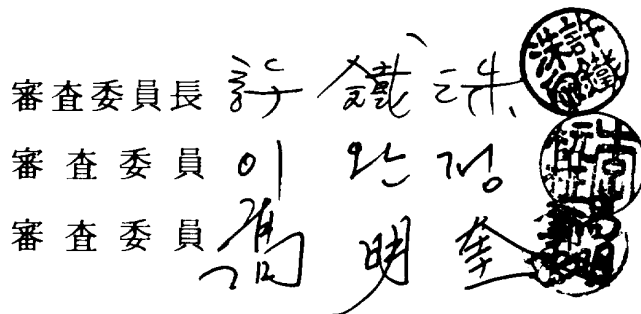 審査委員長 許鐵洙
審査委員 이완정
審査委員 高明奎